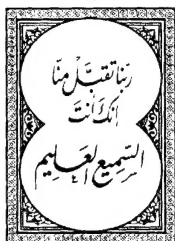 ربنا تقبل منا
انك أنت
السميع العليم